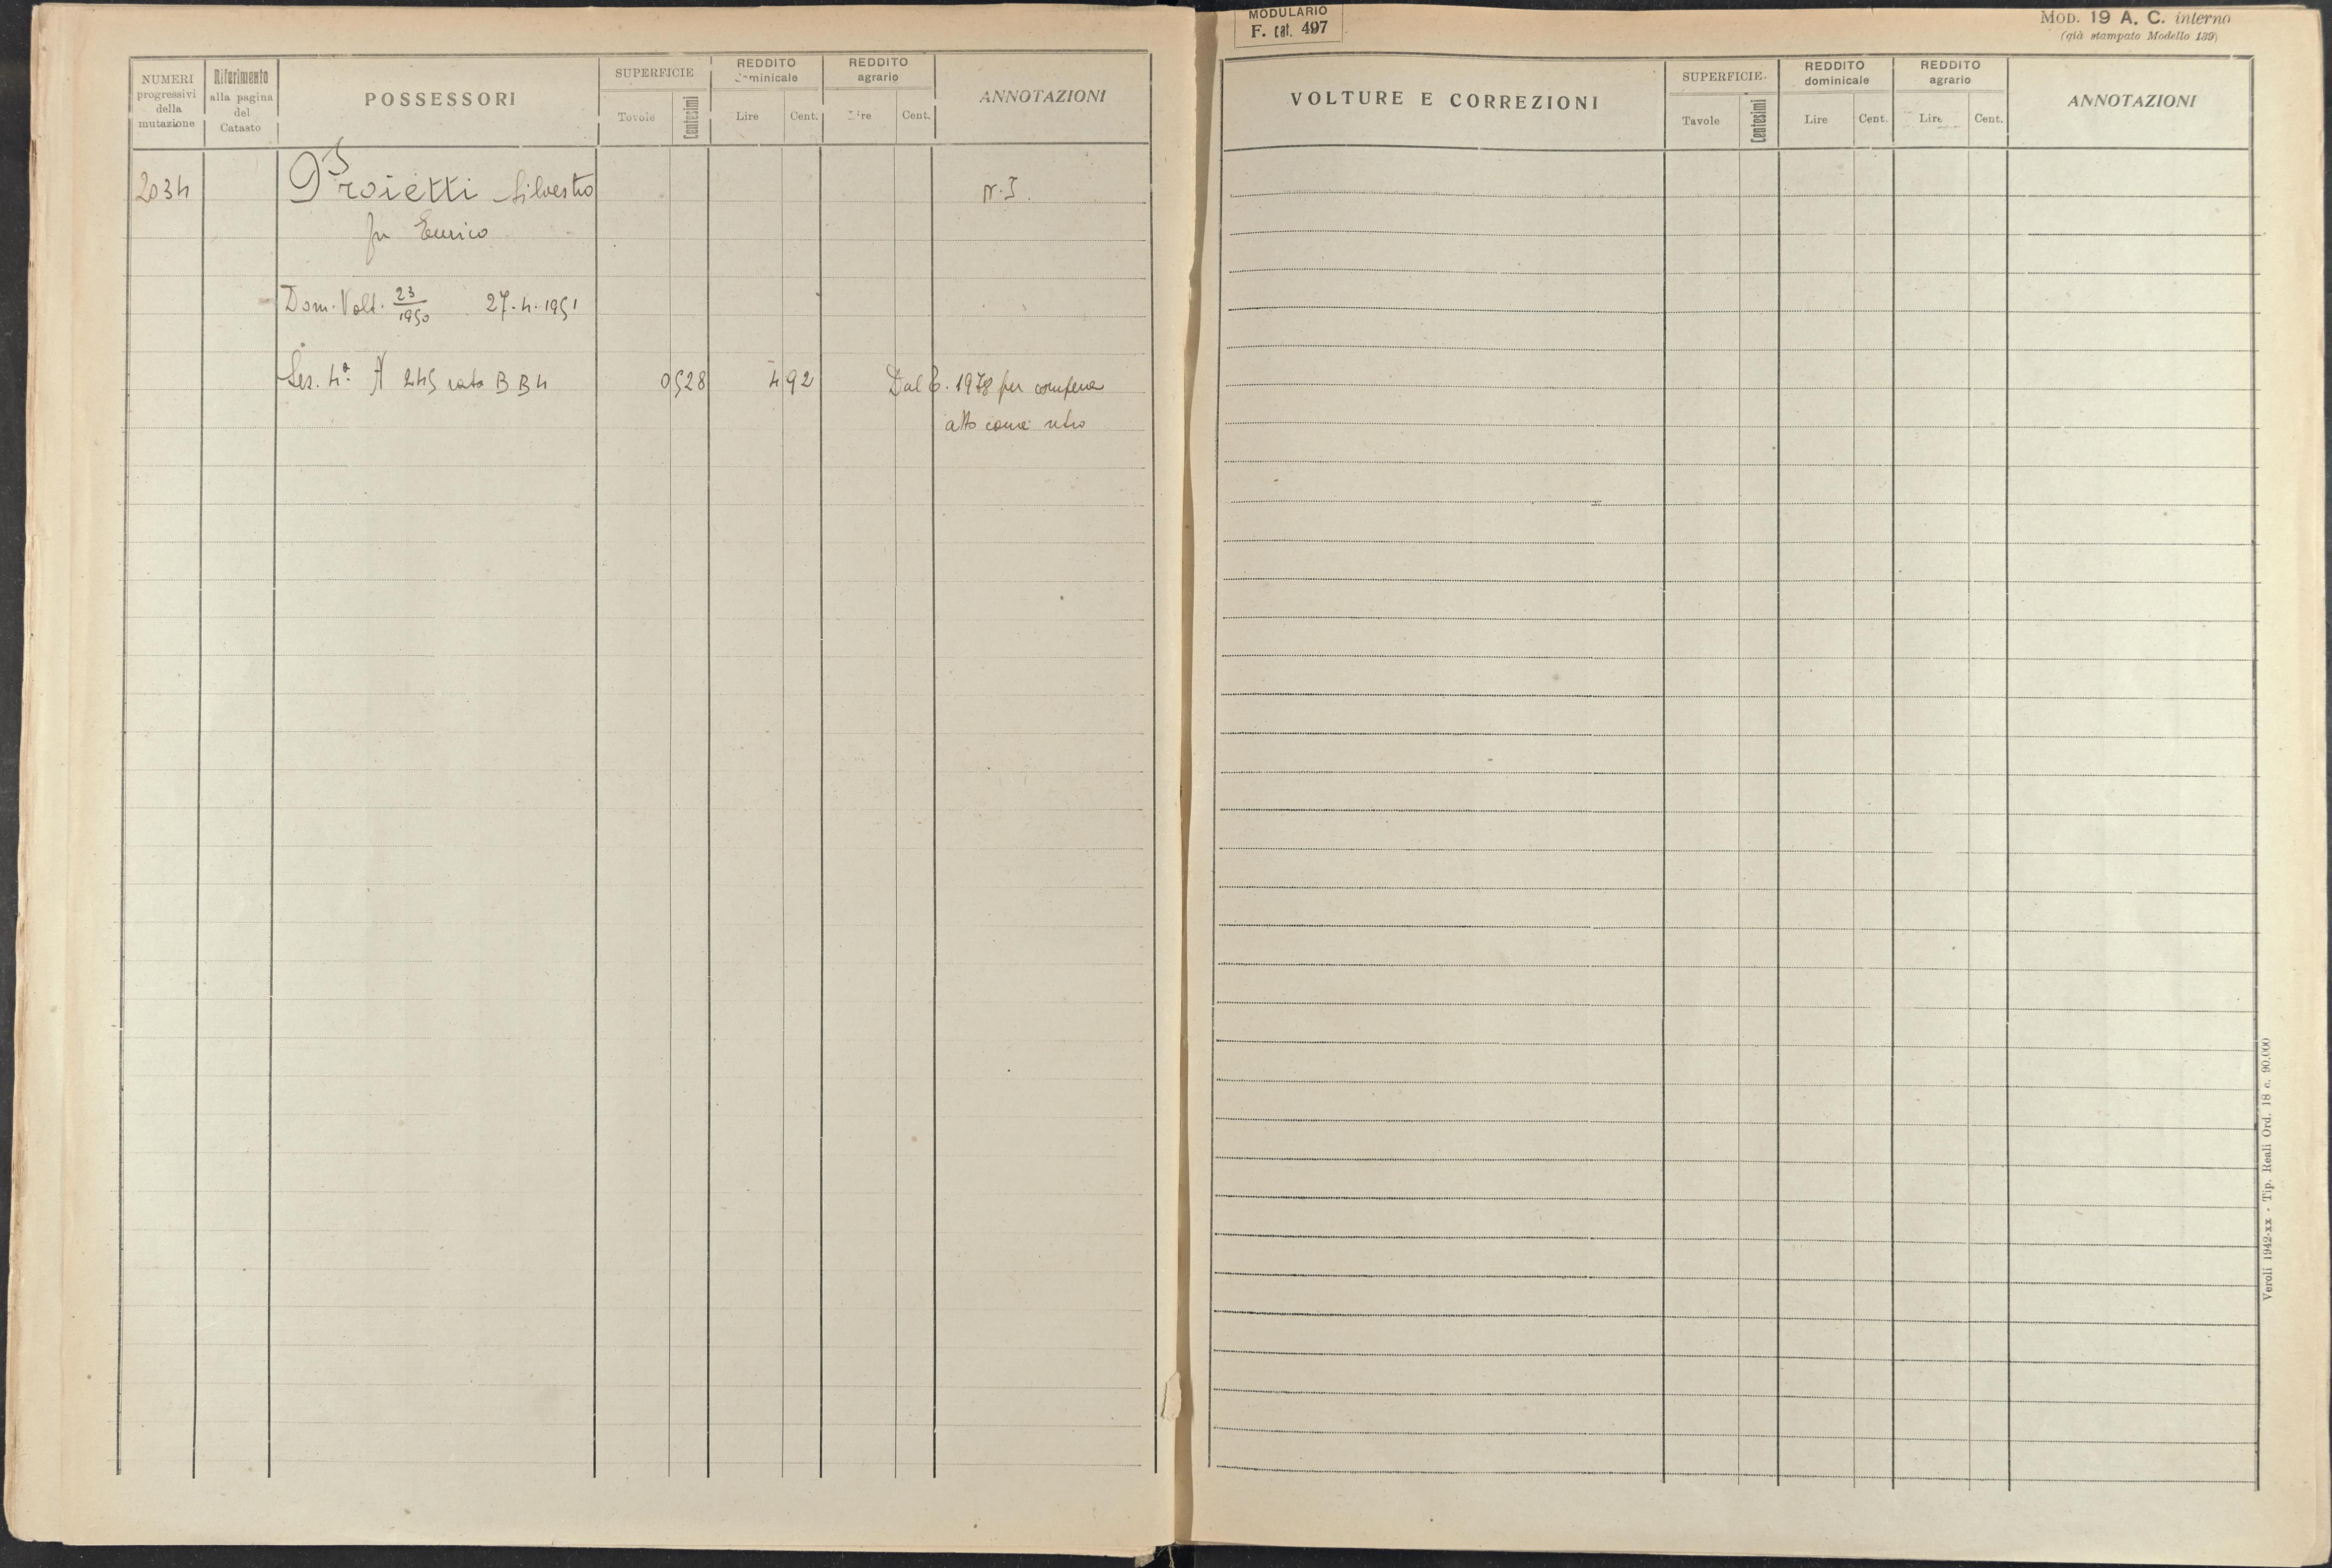 NUMERI progressivi della mutazione
Riferimento alla pagina del Catasto
POSSESSORI
SUPERFICIE
Tavole
Centesimi
REDDITO dominicale
Lire
Cent.
REDDITO agrario
Lire
Cent.
ANNOTAZIONI
2034 Proietti Silvestro N.I.
fu Enrico
Dom. Volt. 23/1950 27-4-1951
Sez. 4ª A 245 rata B B 4 0528 4 92 Dal C. 1978 per compera
atto come retro
MODULARIO
F. cat. 497
MOD. 19 A. C. interno
(già stampato Modello 139)
VOLTURE E CORREZIONI
SUPERFICIE.
Tavole
Centesimi
REDDITO dominicale
Lire
Cent.
REDDITO agrario
Lire
Cent.
ANNOTAZIONI
Veroli 1942-XX - Tip. Reali Ord. 18 c. 90.000